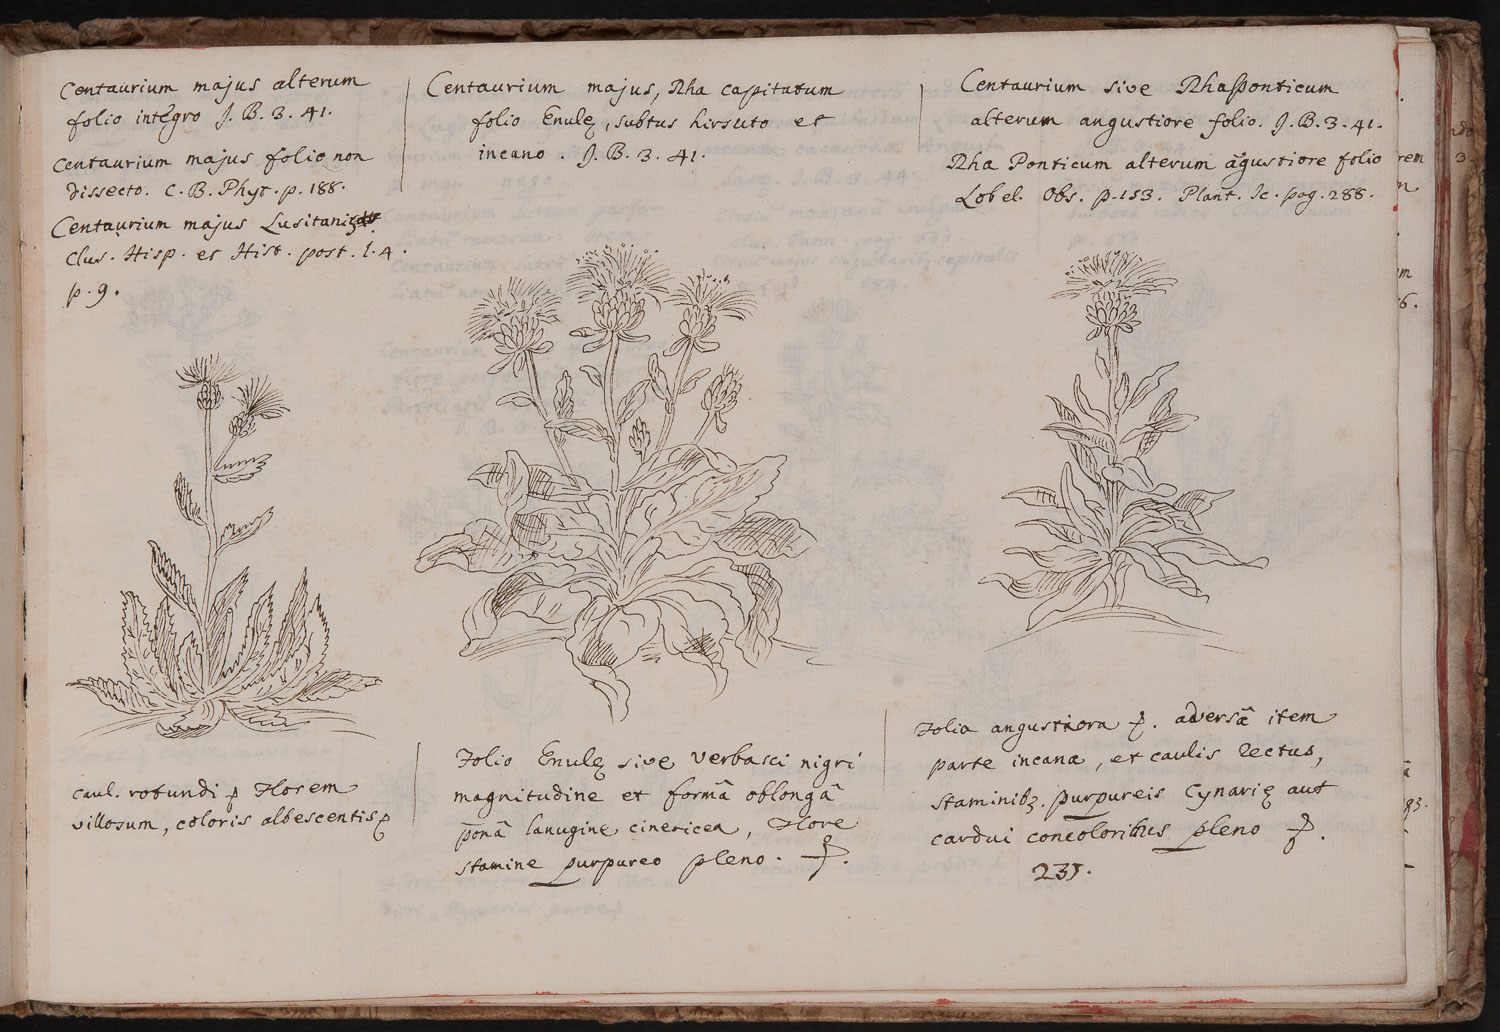 Centaurium majus alterum
folio integro J. B. 3. 41.
Centaurium majus folio non
dissecto. C. B. Phyt. p. 188.
Centaurium majus Lusitanię
Clus. Hisp. et Hist. post. l. 4.
p. 9.
Centaurium majus, Rha capitatum
folio Enulę, subtus hirsuto et
incano. J. B. 3. 41.
Centaurium sive Rhaponticum
alterum angustiore folio. J. B. 3. 41.
Rha Ponticum alterum āgustiore folio
Lobel. Obs. p. 153. Plant. Ic. pag. 288.
caul. rotundi Florem
villosum, coloris albescentis
Folio Enulę sive Verbasci nigri
magnitudine et formā oblongā
p̄onā lanugine cinericea, Flore
stamine purpureo pleno.
Folia angustiora adversā item
parte incana, et caulis rectus,
staminibꝫ. purpureis Cynarię aut
cardui concoloribus pleno
231.